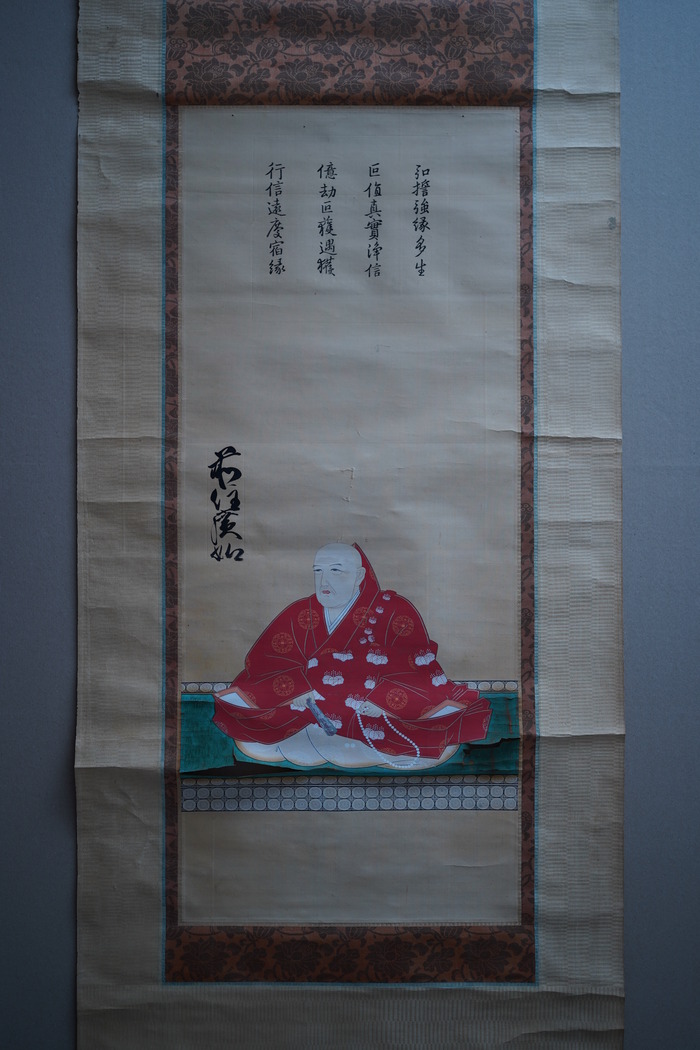 弘誓強縁多生
叵値真實淨信
億劫叵獲遇獲
行信遠慶宿縁
前住廣如